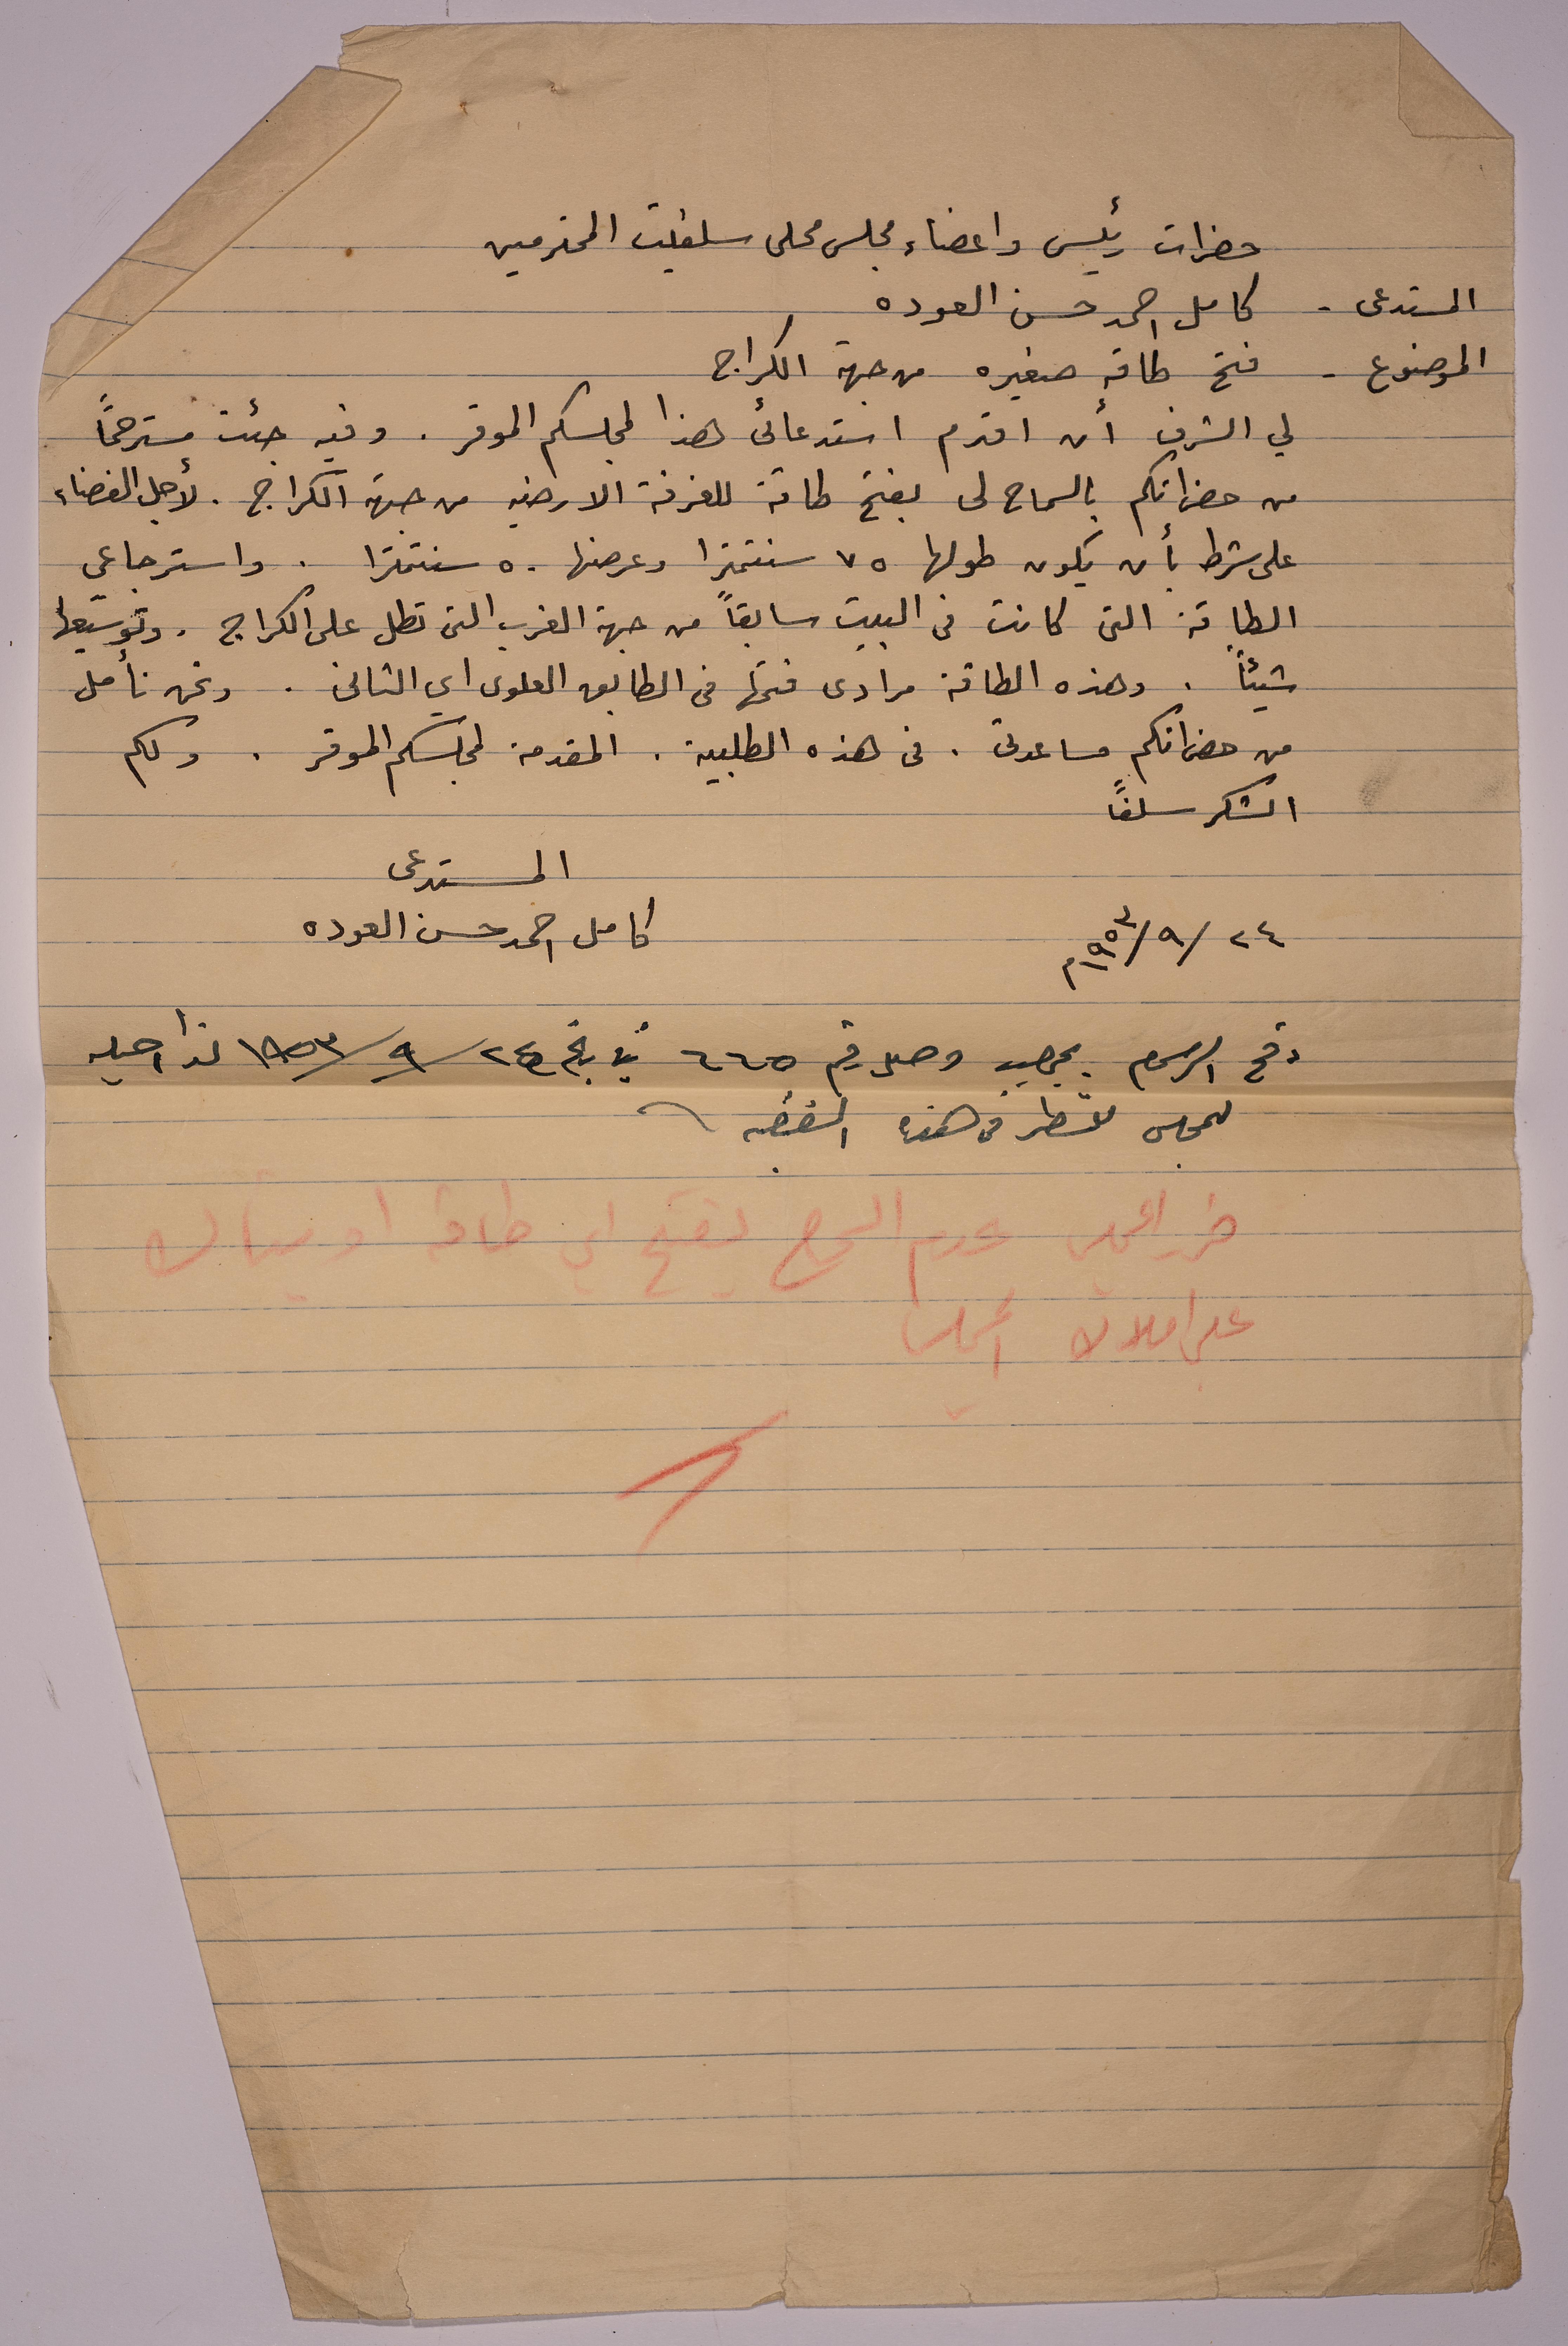 حضرات رئيس واعضاء مجلس محلى سلفيت المحترمين
المستدعى - كامل احمد حسن العوده
الموضوع - فتح طاقه صغيره من جهة الكراج
لي الشرف أن اقدم استدعائى هذا لمجلسكم الموقر . وفيه جئت مسترحماً
من حضراتكم بالسماح لى بفتح طاقة للغرفة الارضيه من جهة الكراج . لأجل الفضاء
على شرط بأن يكون طولها ٧٥ سنتمترا وعرضها ٥٠ سنتمترا . واسترجاعي
الطاقة التى كانت فى البيت سابقاً من جهة الغرب التى تطل على الكراج . وتوسيعها
شيئاً . وهذه الطاقة مرادى فتحها فى الطابق العلوى اي الثانى . ونحن نأمل
من حضراتكم مساعدتى . فى هذه الطلبية . المقدمة لمجلسكم الموقر . ولكم
الشكر سلفاً
المستدعى
٢٤ /٩/ ١٩٥٣م كامل احمد حسن العوده
دفع الرسوم بموجب وصل رقم ٦٦٥ في تاريخ ٢٤/ ٩/ ١٩٥٣ لذا احيله
للمجلس للنظر فى هذه القضيه
قرر المجلس عدم السماح بفتح اي طاقه او شباك
على املاك المجلس